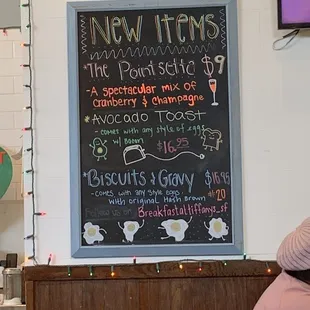 New Items
*The Poinsettia $9
-A spectacular mix of
cranberry & champagne
*Avocado Toast
-comes with any style of eggs
w/ Bacon $16.95
*Biscuits & Gravy $15.95
-comes with any style eggs
with original Hash Brown
Follow us on Breakfastattiffanys_sf